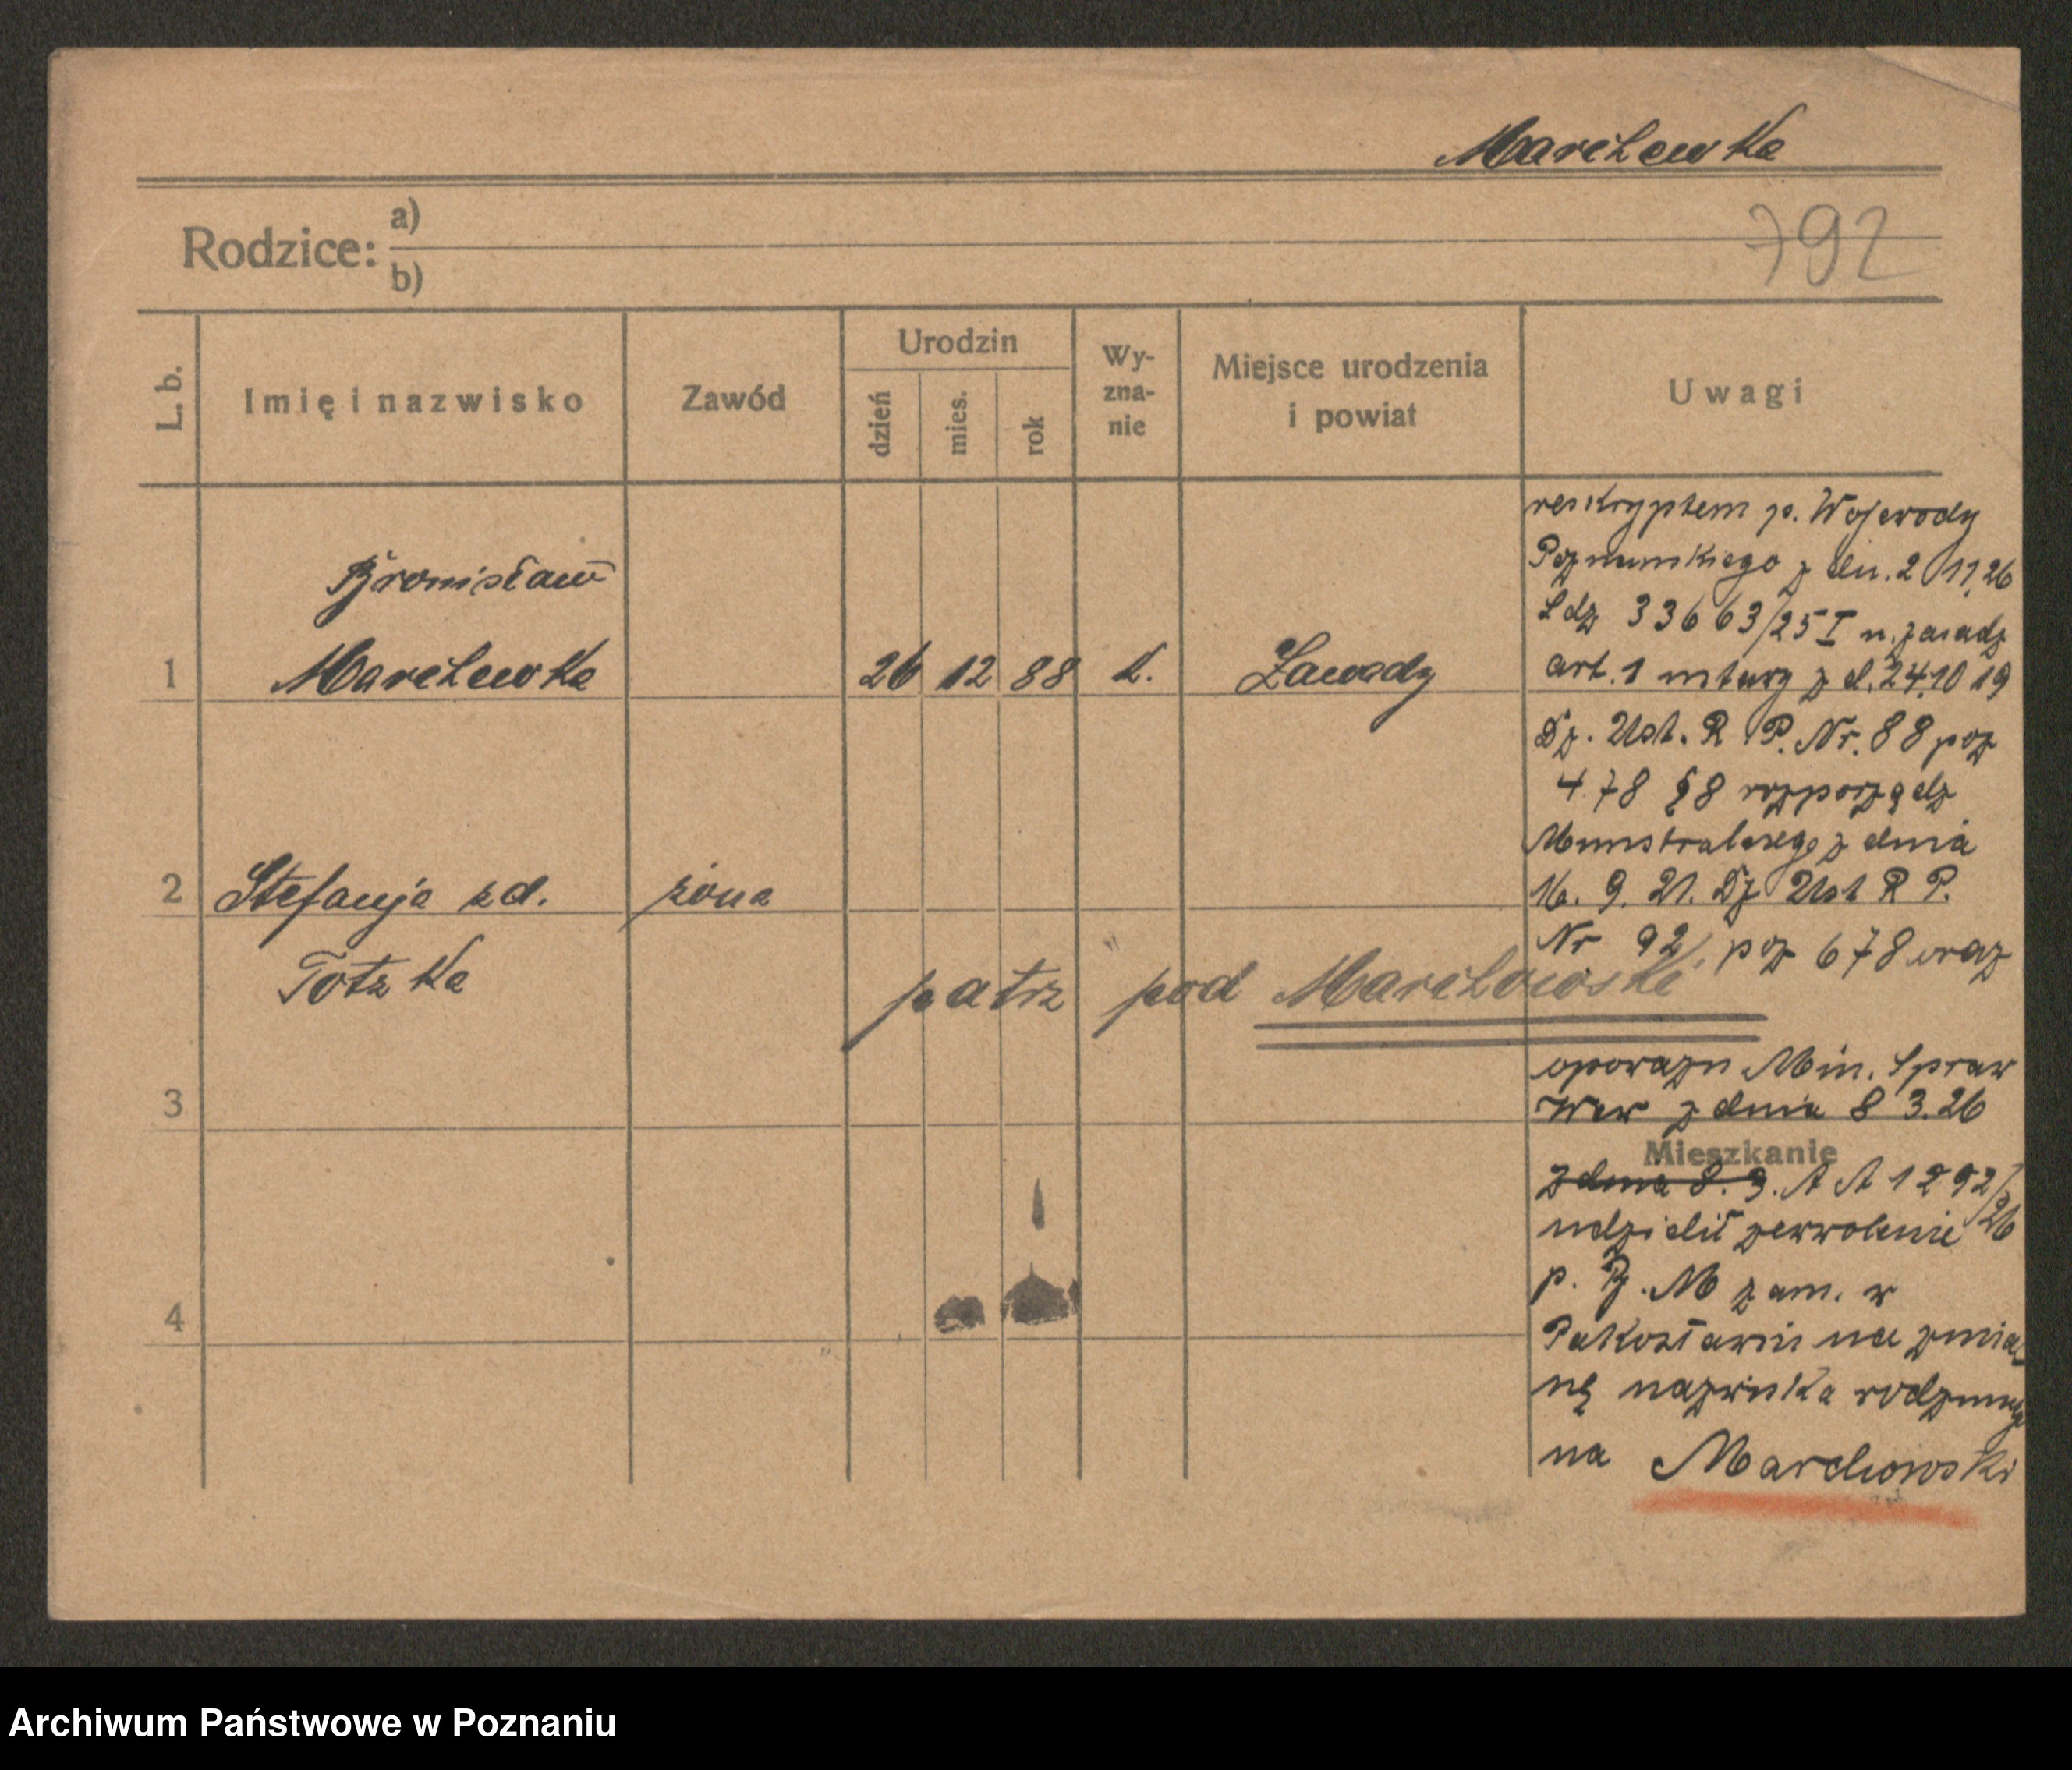 Marchewka
792
Rodzice: a)
b)
L. b.
Imię i nazwisko
Zawód
Urodzin
dzień
mies.
rok
Wy-
zna-
nie
Miejsce urodzenia
i powiat
Uwagi
1
Bronisław
Marchewka
26 12 88
k.
Zawady
2
Stefanja zd.
żona
Totzka
patrz pod Marchowski
3
4
reskryptem p. Wojewody
Poznanskiego z dn. 2 11.26
Ldz 33663/25 I n. zasadz
art. 1 z d. 24.10 19
Dz. Ust. R P. Nr. 88 poz
478 § 8 rozporządz
z dnia
16. 9. 21. Dz Ust R P.
Nr 92 poz 678 oraz
Min. Spraw
Wew z dnia 8 3.26
Mieszkanie
z dnia 8. 3. A A 1292/26
udzielił zezwolenie
p. B. M zam. w
Pakosławiu na zmia
nę nazwiska
na Marchowski
Archiwum Państwowe w Poznaniu